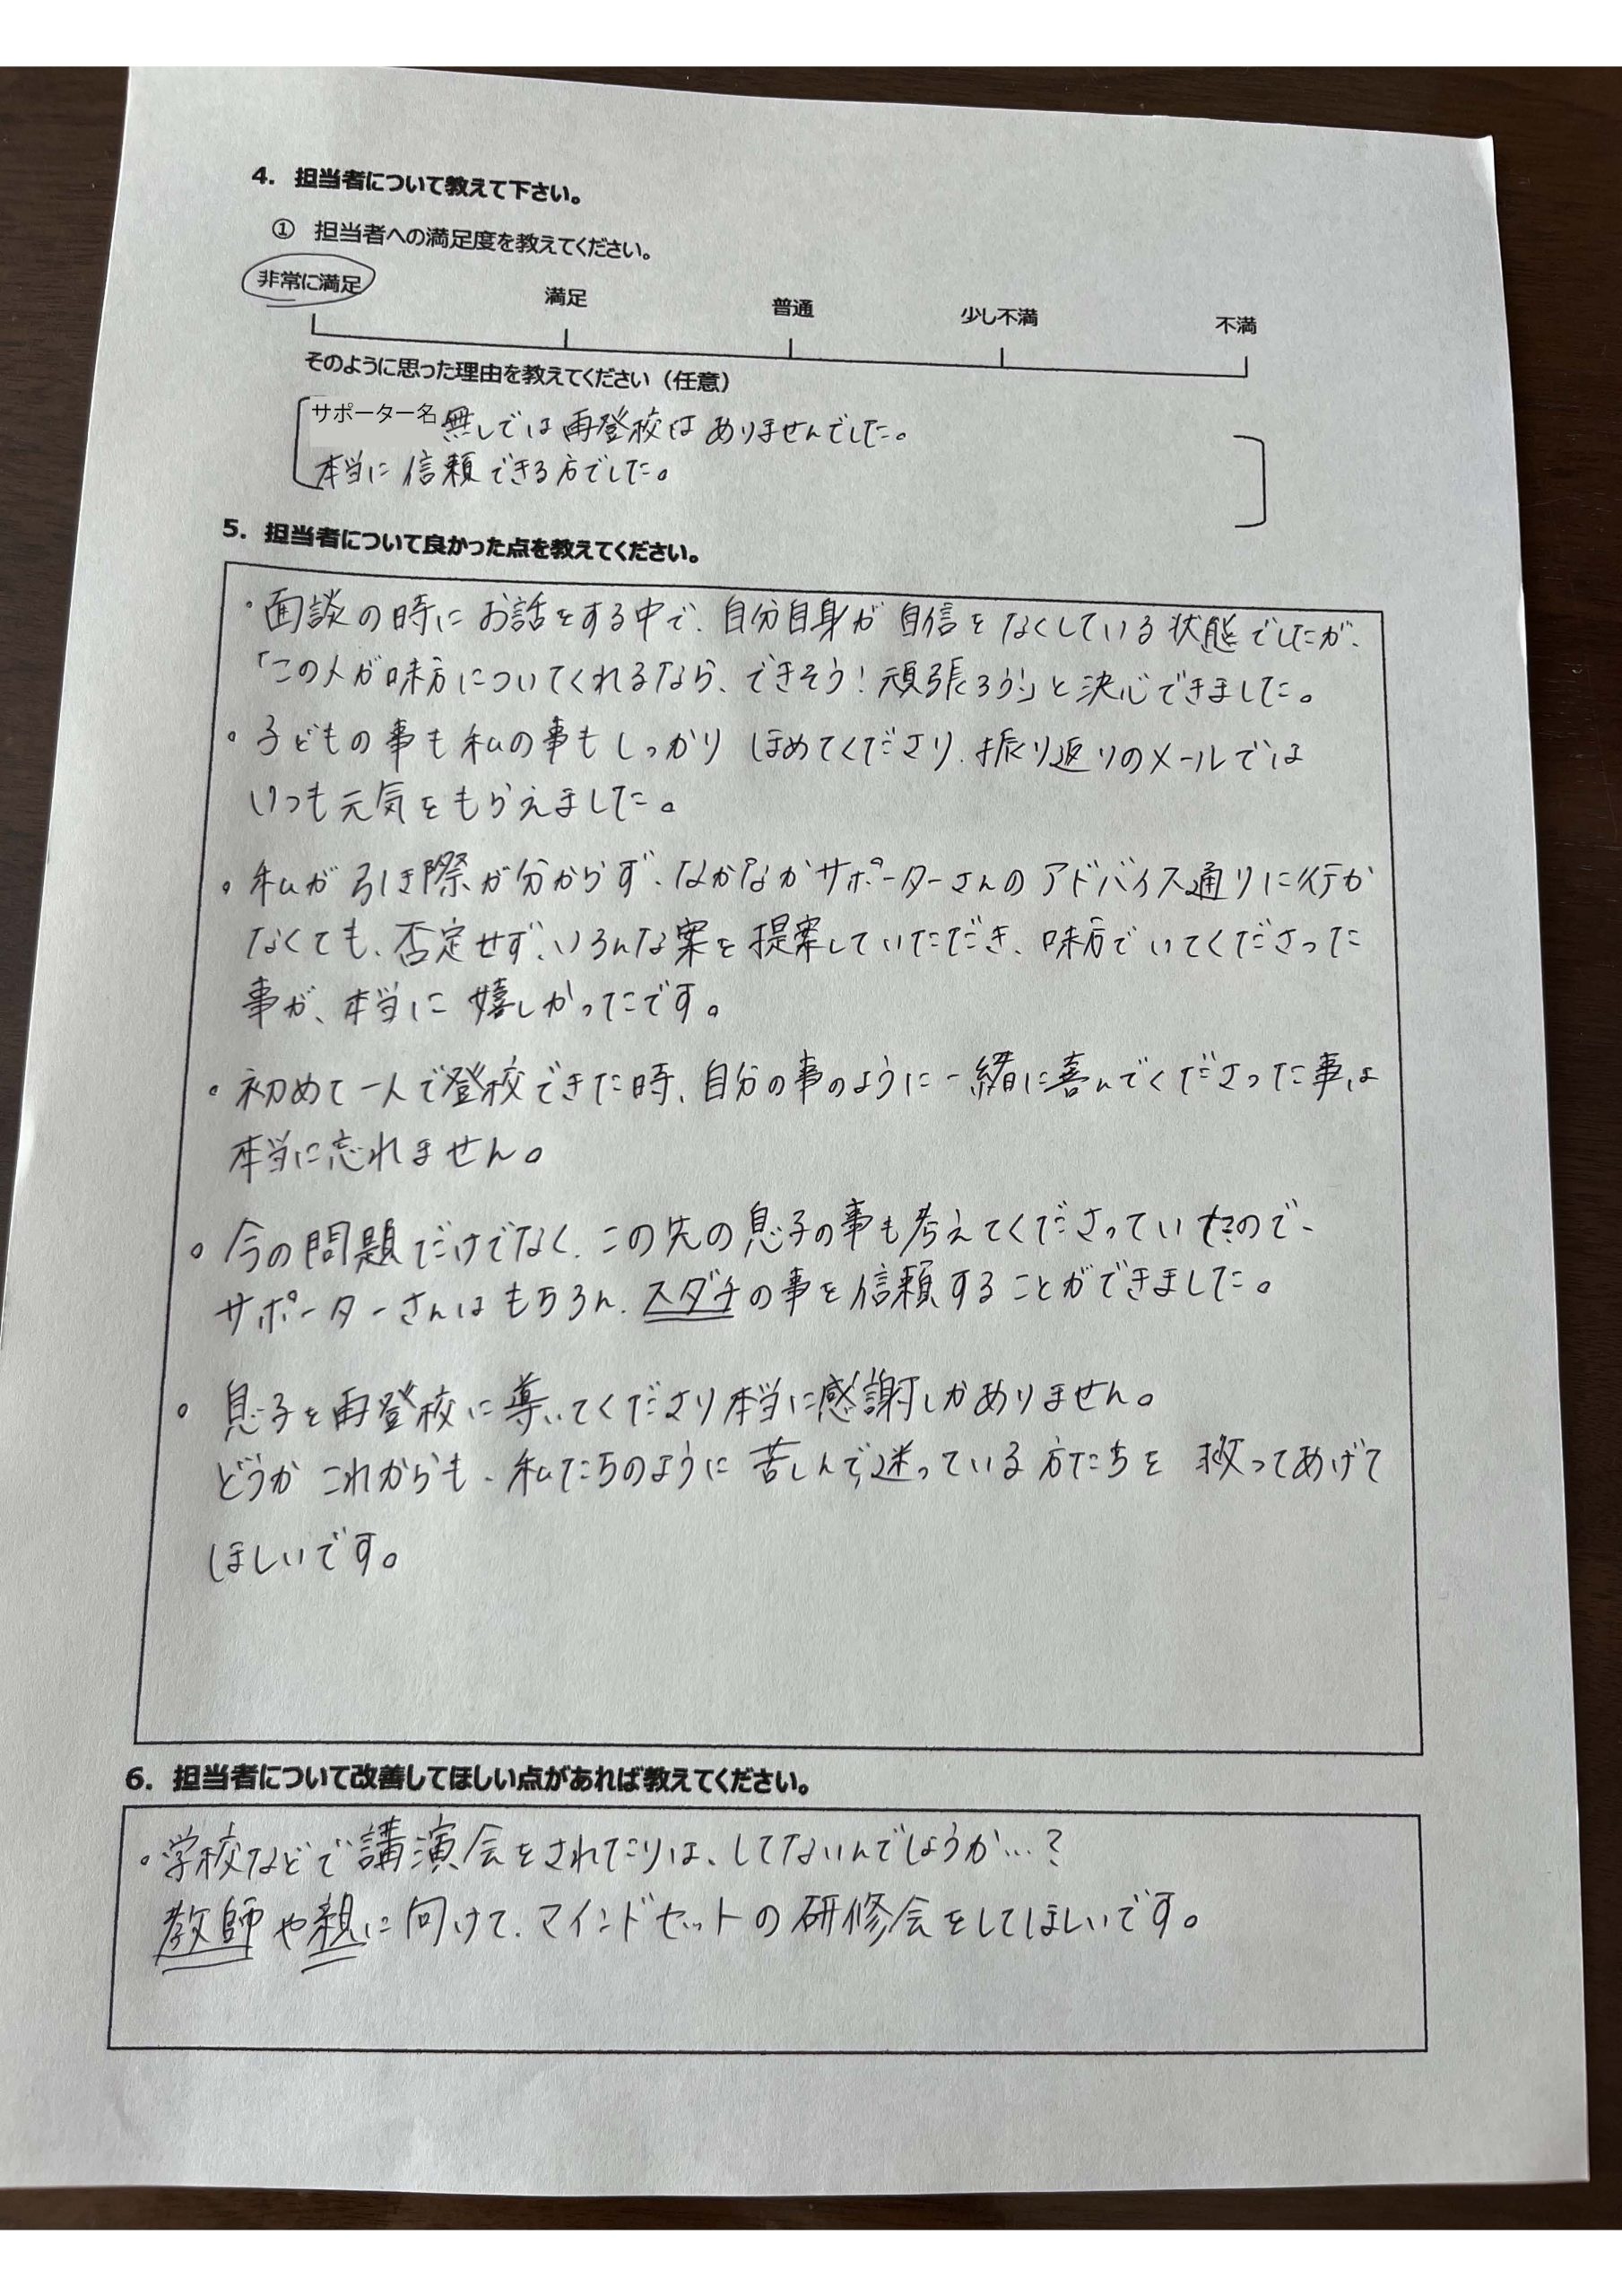 4. 担当者について教えて下さい。
① 担当者への満足度を教えてください。
非常に満足 満足 普通 少し不満 不満
そのように思った理由を教えてください（任意）
サポーター名 無しでは再登校はありませんでした。
本当に信頼できる方でした。
5. 担当者について良かった点を教えてください。
・面談の時にお話をする中で、自分自身が自信をなくしている状態でしたが、
「この人が味方についてくれるなら、できそう！頑張ろう」と決心できました。
・子どもの事も私の事もしっかりほめてくださり、振り返りのメールでは
いつも元気をもらえました。
・私が引き際が分からず、なかなかサポーターさんのアドバイス通りに行か
なくても、否定せず、いろんな案を提案していただき、味方でいてくださった
事が、本当に嬉しかったです。
・初めて一人で登校できた時、自分の事のように一緒に喜んでくださった事は
本当に忘れません。
・今の問題だけでなく、この先の息子の事も考えてくださっていたので、
サポーターさんはもちろん、スダチの事を信頼することができました。
・息子を再登校に導いてくださり本当に感謝しかありません。
どうかこれからも、私たちのように苦しんで、迷っている方たちを救ってあげて
ほしいです。
6. 担当者について改善してほしい点があれば教えてください。
・学校などで講演会をされたりは、してないんでしょうか…？
教師や親に向けて、マインドセットの研修会をしてほしいです。